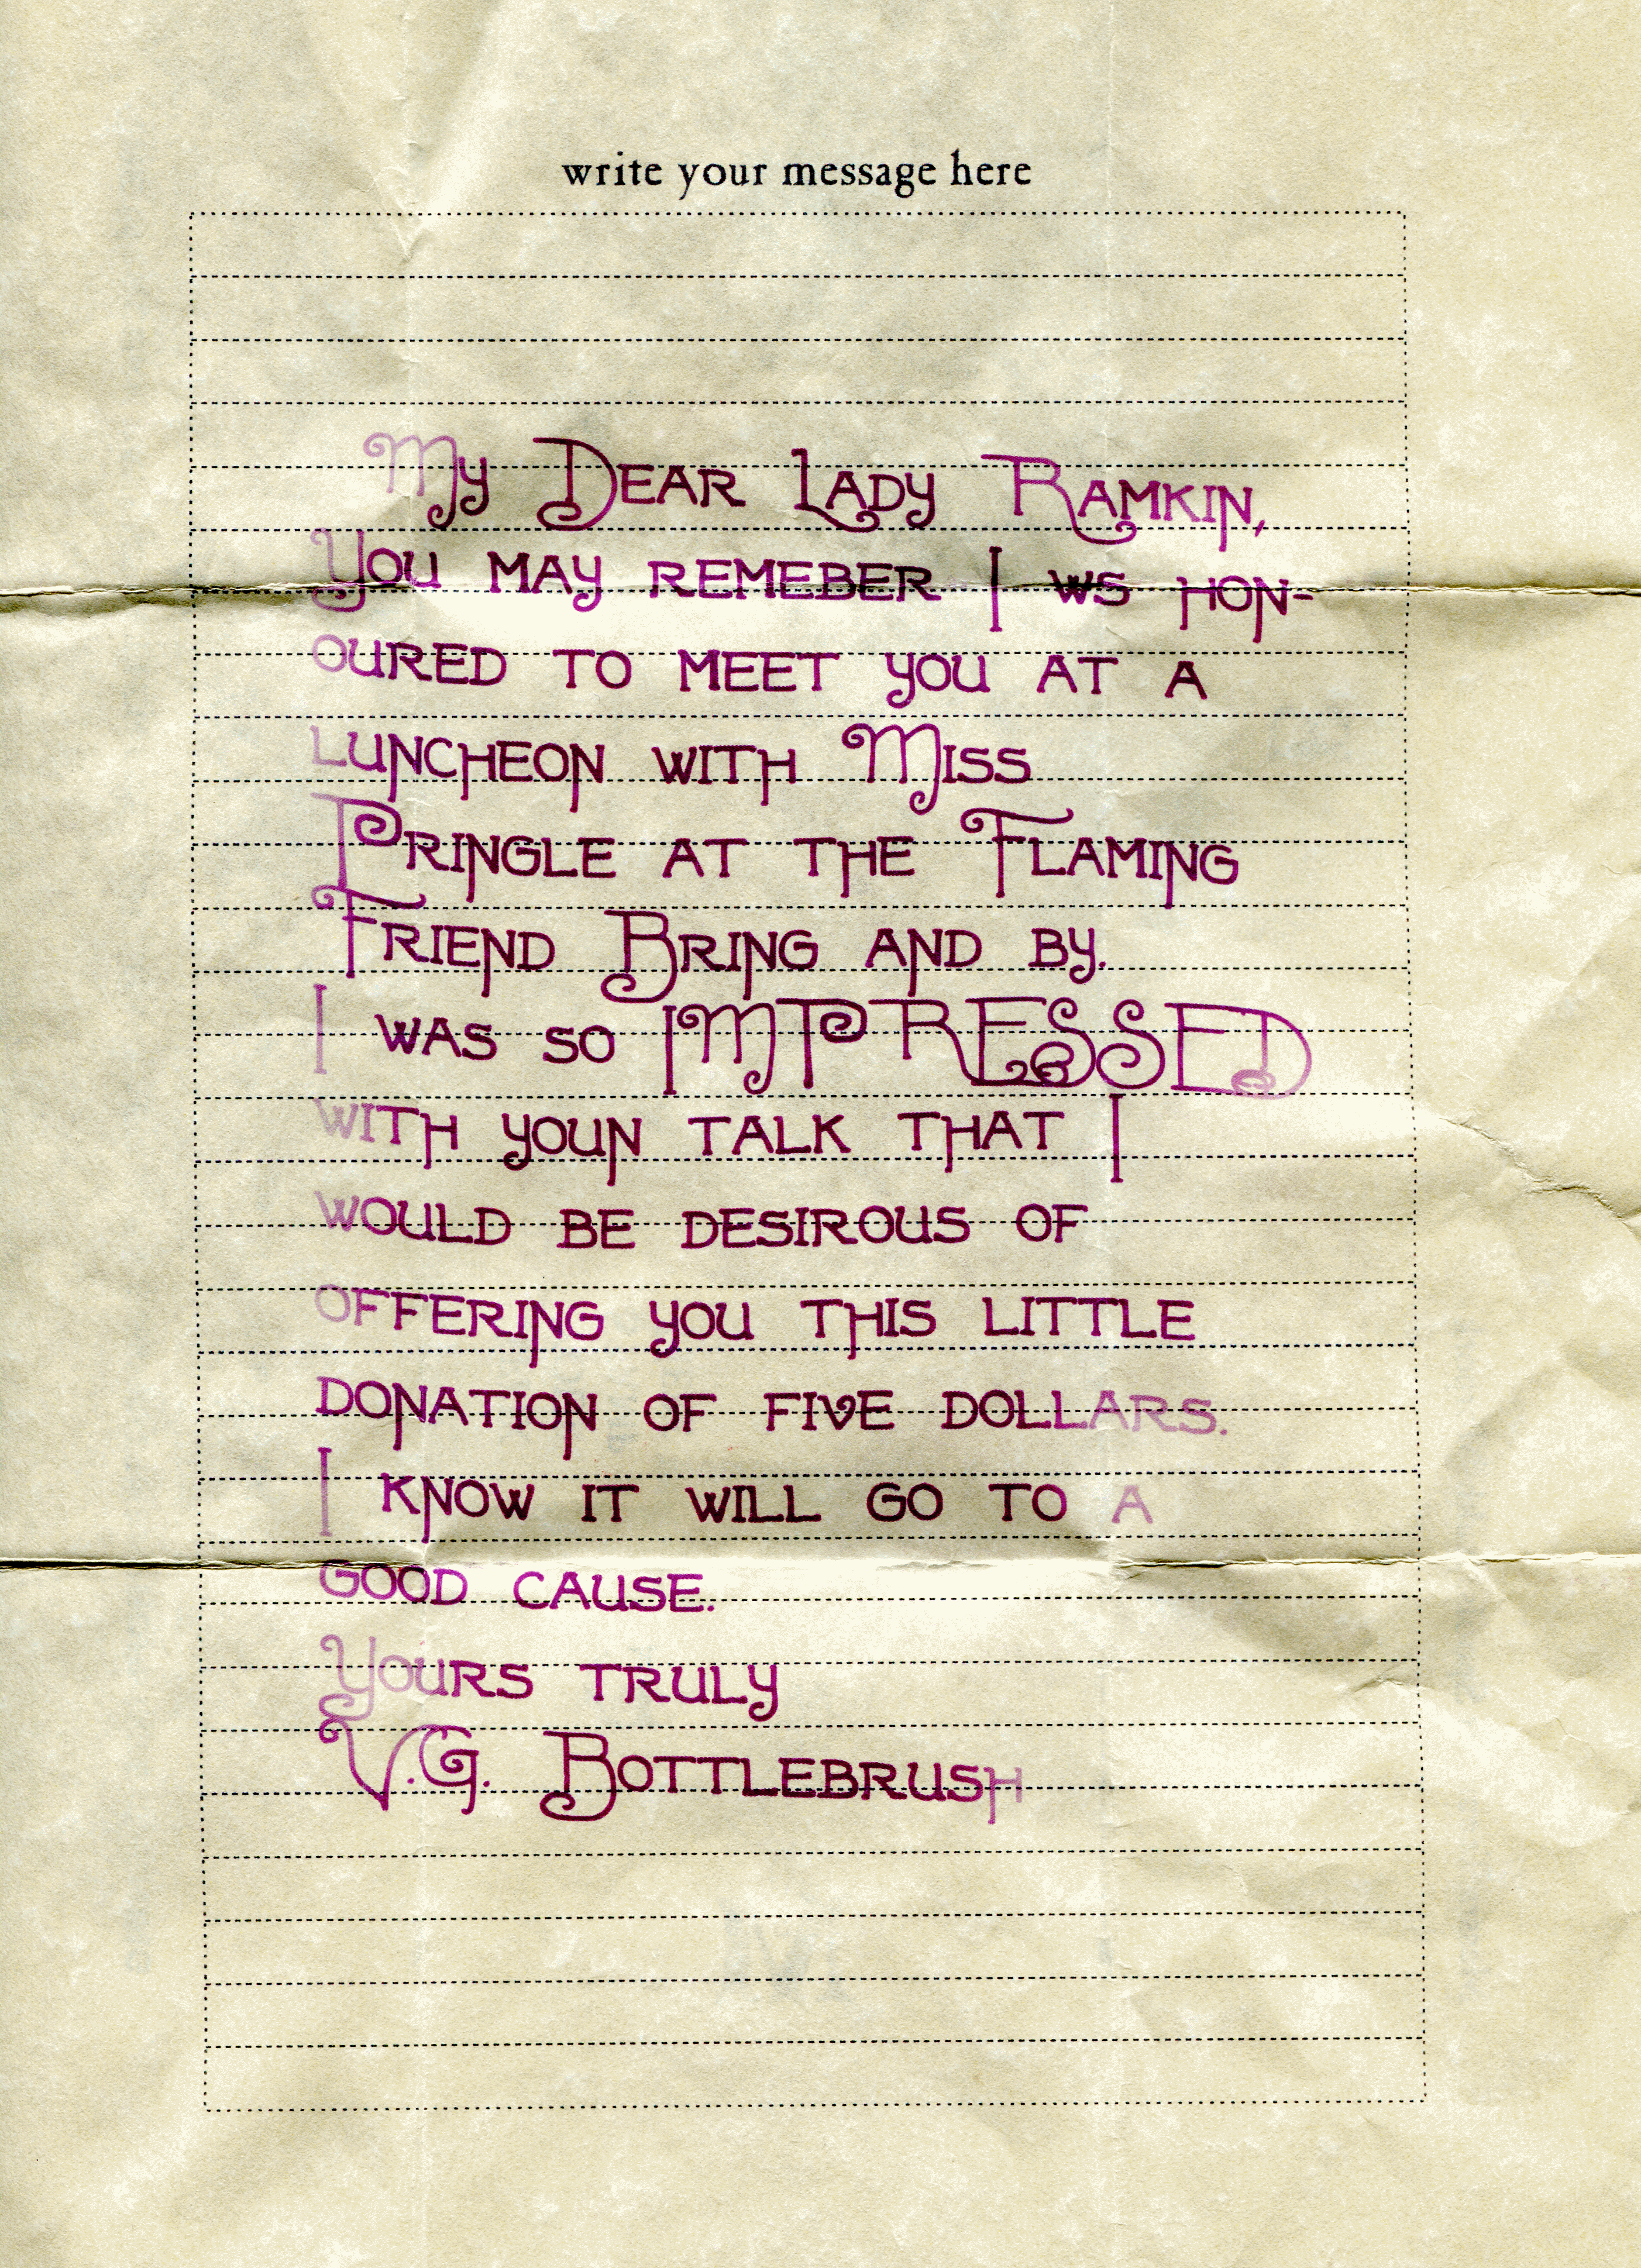 write your message here
My Dear Lady Ramkin,
You may remeber I ws hon-
oured to meet you at a
luncheon with Miss
Pringle at the Flaming
Friend Bring and by.
I was so IMPRESSED
with youn talk that I
would be desirous of
offering you this little
donation of five dollars.
I know it will go to a
good cause.
Yours truly
V.G. Bottlebrush